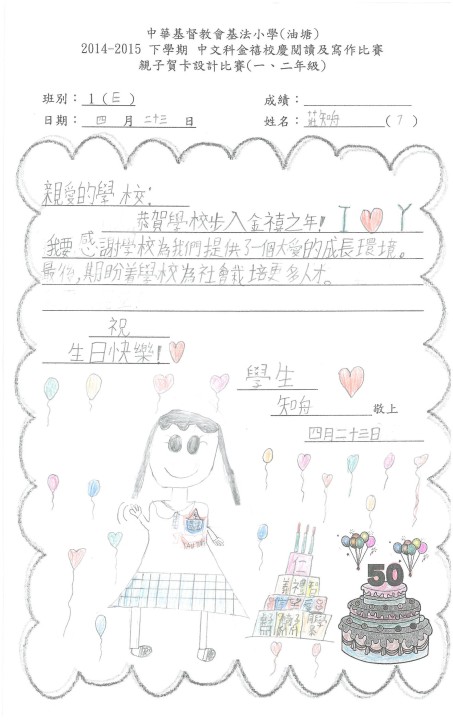 中華基督教會基法小學(油塘)
2014-2015 下學期 中文科金禧校慶閱讀及寫作比賽
親子賀卡設計比賽(一、二年級)
班別: 1(E) 成績:
日期: 四 月 二十三 日 姓名: 莊知舟 (7)
親愛的學校:
恭賀學校步入金禧之年! I Y
我要感謝學校為我們提供了一個大愛的成長環境。
最後,期盼着學校為社會栽培更多人才。
祝
生日快樂!
學生
知舟 敬上
四月二十三日
仁
義禮智
50